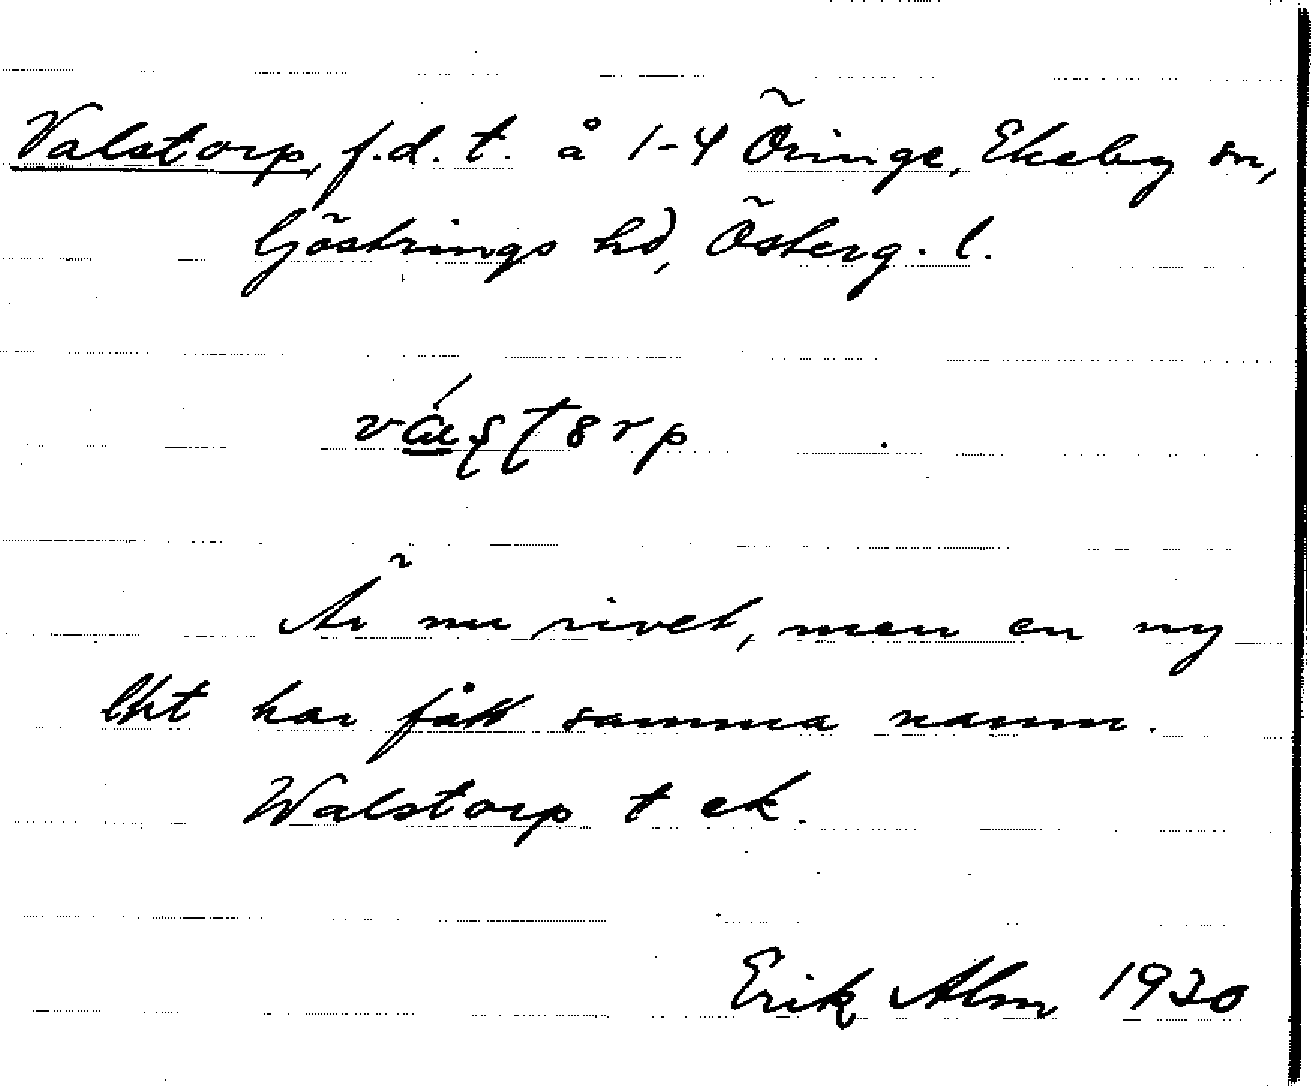 Valstorp, f.d. t. å 1-4 Öringe, Ekeby sn,
Göstrings hd, Österg. l.
Är nu rivet, men en ny
lht har fått samma namn.
Walstorp t ek.
Erik Alm 1920